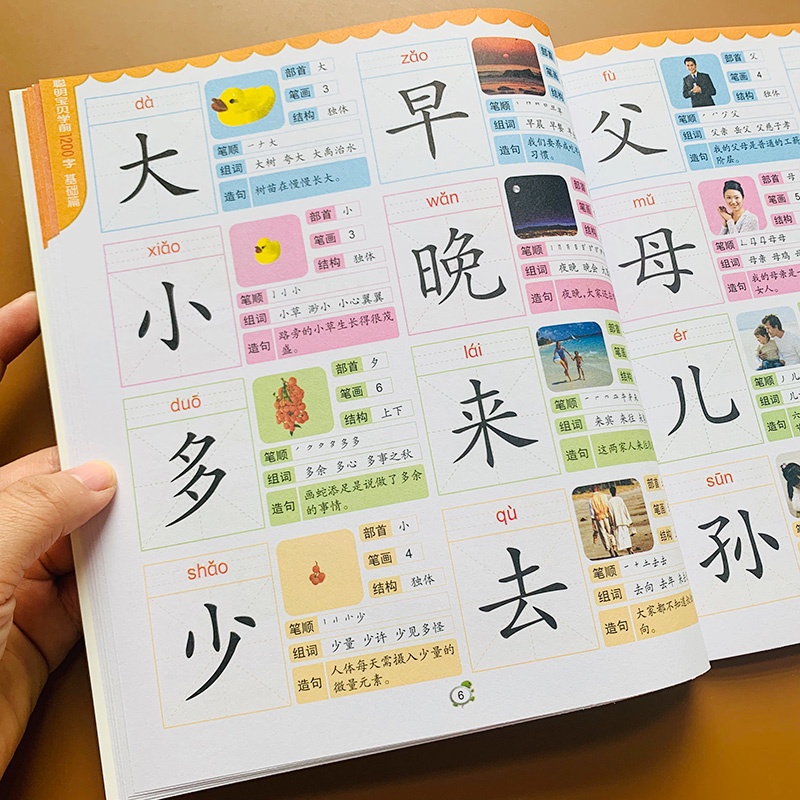 聪明宝贝学前1200字 基础篇
dà
大
部首 大
笔画 3
结构 独体
笔顺 一ナ大
组词 大树 夸大 大禹治水
造句 树苗在慢慢长大。
xiǎo
小
部首 小
笔画 3
结构 独体
笔顺 亅小小
组词 小草 渺小 小心翼翼
造句 路旁的小草生长得很茂
盛。
duō
多
部首 夕
笔画 6
结构 上下
笔顺
组词 多余 多心 多事之秋
造句 画蛇添足是说做了多余
的事情。
shǎo
少
部首 小
笔画 4
结构 独体
笔顺
组词 少量 少许 少见多怪
造句 人体每天需摄入少量的
微量元素。
zǎo
早
部首
笔画
结构
笔顺
组词 早晨
造句 我们要养成
习惯。
wǎn
晚
部首
笔画
结构
笔顺
组词 夜晚 晚会
造句 夜晚,大家还
lái
来
部首
笔画
结构
笔顺
组词 来宾 来往
造句 这两家人来往
qù
去
部首
笔画
结构
笔顺 一十土去去
组词 去向 去年
造句 大家都不知道
向。
6
fù
父
部首 父
笔画 4
结构 独体
笔顺
组词 父亲 岳父 父慈子孝
造句 我的父母是普通的工薪
阶层。
mǔ
母
部首 母
笔画 5
结构
笔顺
组词 母亲 母鸡
造句 我的母亲是一
女人。
ér
儿
笔顺 丿儿
组词
造句
sūn
孙
笔顺
组词
造句